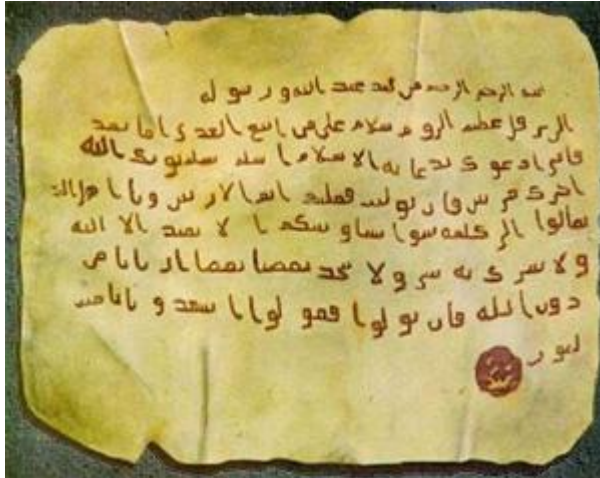 بسم الرحمن الرحيم من محمد عبد الله ورسوله
الى هرقل عظيم الروم سلام على من اتبع الهدى اما بعد
فانى ادعوك بدعاية الاسلام اسلم تسلم يوتك الله
اجرك مرتين فان توليت فعليك اثم الاريسين ويا اهل
تعالوا الى كلمة سوا بيننا وبينكم ا لا نعبد الا الله
ولا نشرك به ولا يتخذ بعضنا بعضا اربابا من
دون الله فان تولوا فقولوا اشهدوا بانا مس
لمون